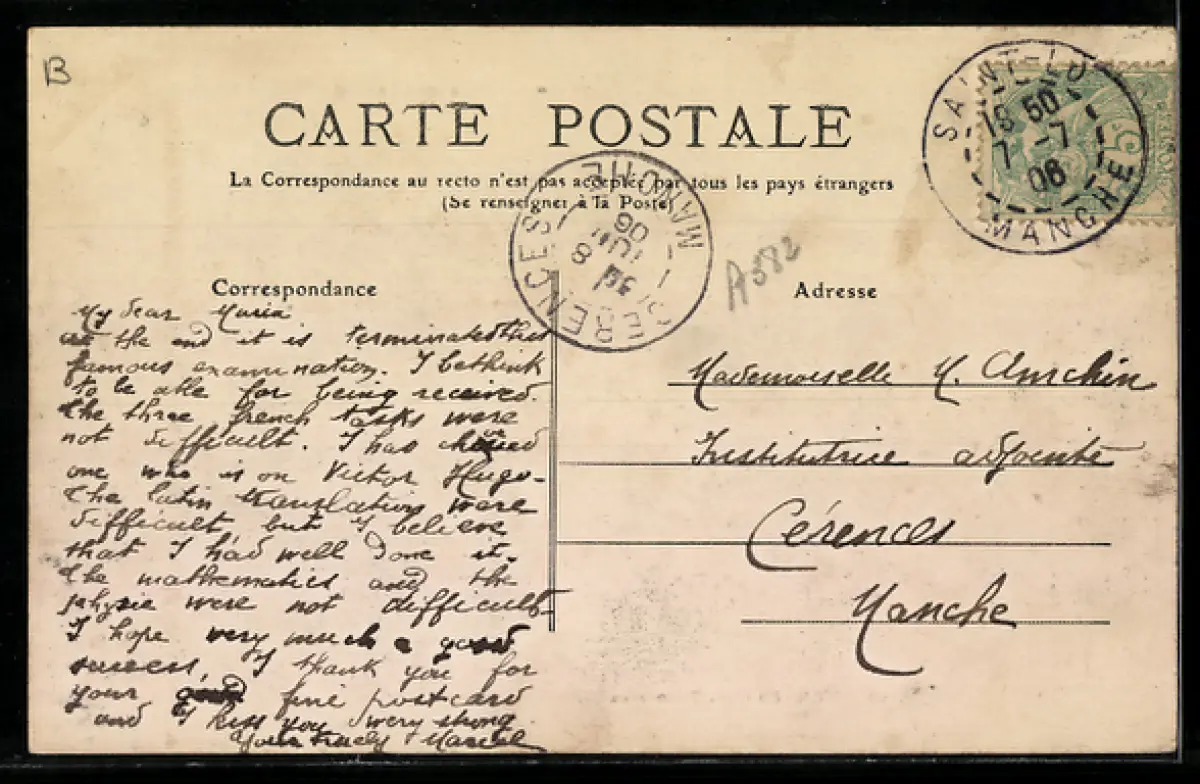 B
CARTE POSTALE
La Correspondance au recto n'est pas acceptée par tous les pays étrangers
(Se renseigner à la Poste)
SAINT-LO
18 50
7 -7
06
MANCHE
CERENCES
8 JUIL
06
MANCHE
A582
Correspondance
My dear Maria
at the end it is terminated this
famous examination. I bethink
to be able for being received.
The three french tasks were
not difficult. I has
one who is on Victor Hugo.
The latin translation were
difficult but I believe
that I had well done it.
The mathematics and the
physic were not difficult.
I hope very much a good
success, I thank you for
your fine postcard
and I kiss you very strong
Your truely Marcel
Adresse
Mademoiselle M.
Institutrice adjointe
Cérences
Manche